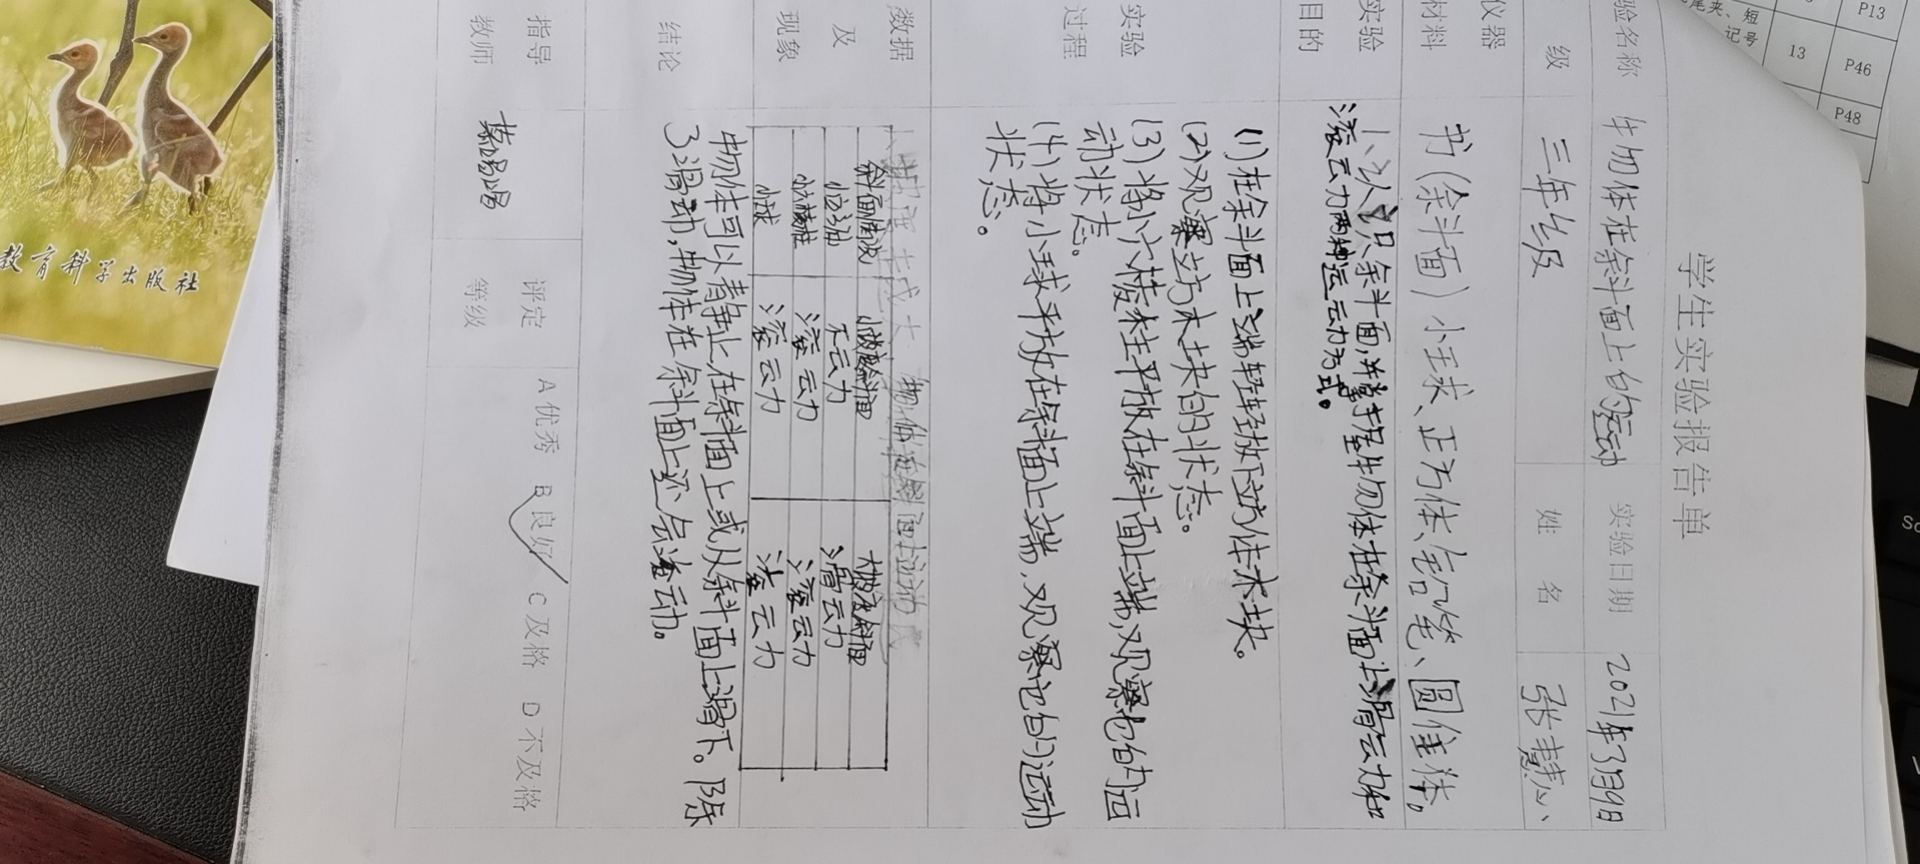 学生实验报告单
验名称 物体在斜面上的运动 实验日期 2021年3月9日
级 三年级 姓名 张慧心
仪器
材料 书(斜面)小球、正方体、铅笔、圆住体。
实验
目的
1、认识斜面,并掌握物体在斜面上滑动和
滚动两种运动方式。
实验
过程
(1)在斜面上端轻轻放下立方体木块。
(2)观察立方木块的状态。
(3)将小六棱柱平放在斜面上端,观察它的运
动状态。
(4)将小球平放在斜面上端,观察它的运动
状态。
数据
及
现象
斜面情况 小坡度斜面 大坡度斜面
不动 滑动
小六棱柱 滚动 滚动
小球 滚动 滚动
结论
物体可以静止在斜面上或从斜面上滑下。除
了滑动,物体在斜面上还会滚动。
指导
教师
评定
等级
A优秀 B良好 C及格 D不及格
教育科学出版社
P13
尾夹、短
记号
13
P46
P48